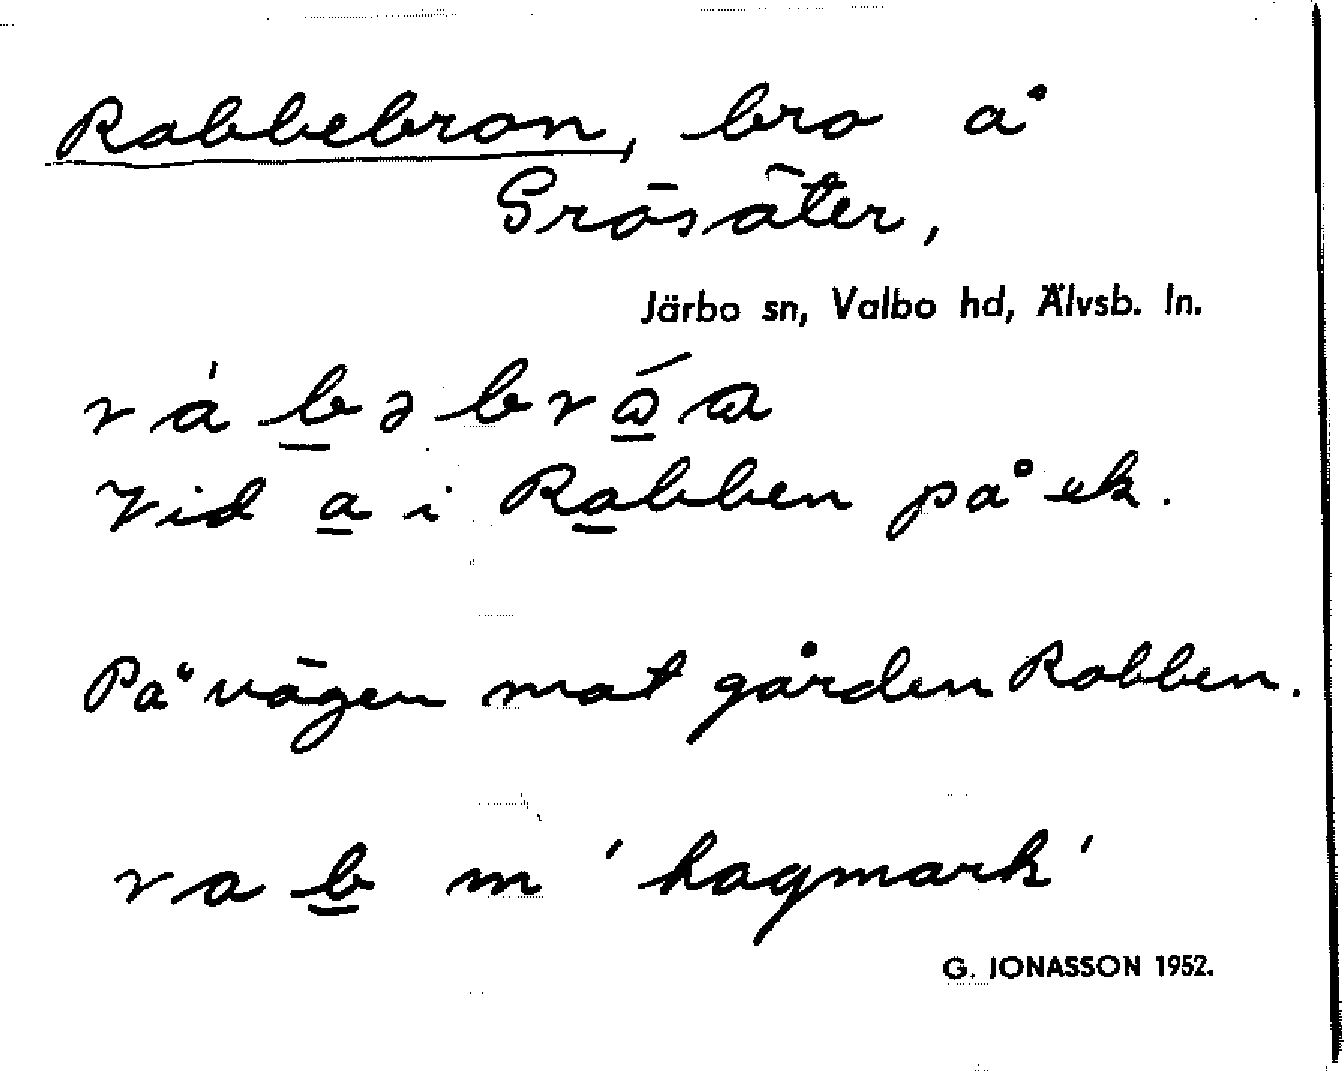 Rabbebron, bro å
Grösäter,
Järbo sn, Valbo hd, Älvsb. ln.
Vid a i Rabben på ek.
På vägen mot gården Rabben.
rab m 'hagmark'
G. JONASSON 1952.